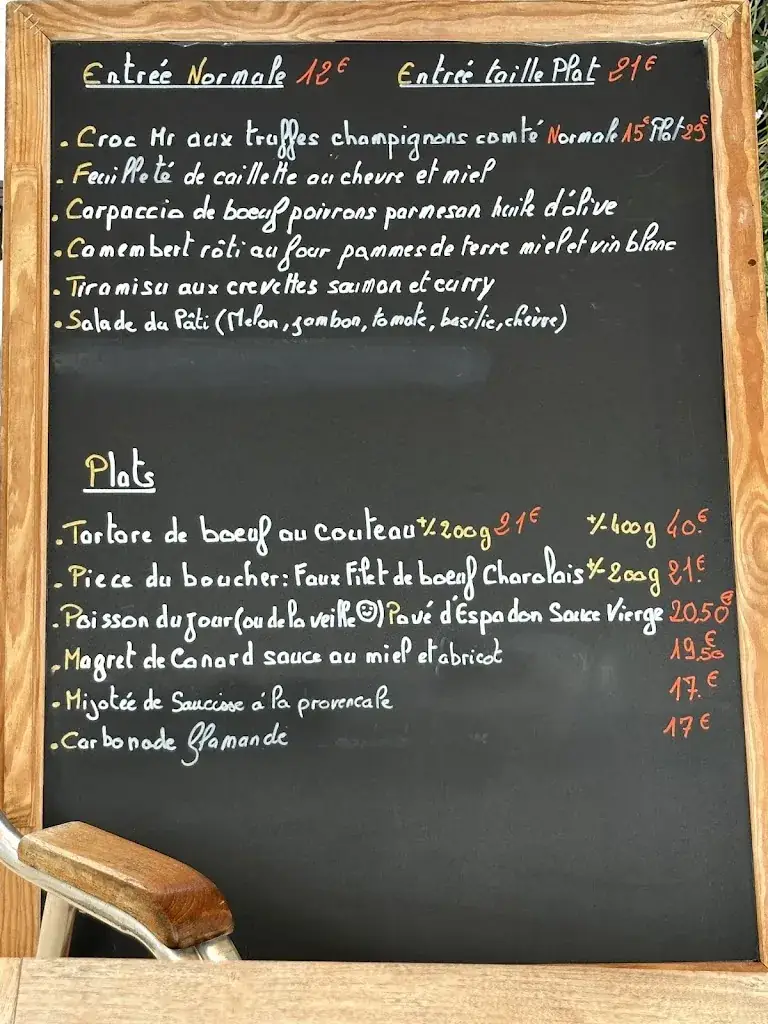 Entrée Normale 12€ Entrée taille Plat 21€
. Croc Mr aux truffes champignons comté Normale 15€ Plat 29€
. Feuilleté de caillette au chevre et miel
. Carpaccio de boeuf poivrons parmesan huile d'ólive
. Camembert rôti au four pommes de terre miel et vin blanc
. Tiramisu aux crevettes saumon et curry
. Salade du Pâti (Melon, jambon, tomate, basilic, chèvre)
Plats
. Tartare de boeuf au couteau +/- 200g 21€ +/- 400g 40.€
. Piece du boucher: Faux Filet de boeuf Charolais +/- 200g 21€.
. Poisson du jour (ou de la veille ☺) Pavé d'Espadon Sauce Vierge 20.50€
. Magret de Canard sauce au miel et abricot 19.€50
. Mijotée de Saucisse à la provencale 17.€
. Carbonade flamande 17€